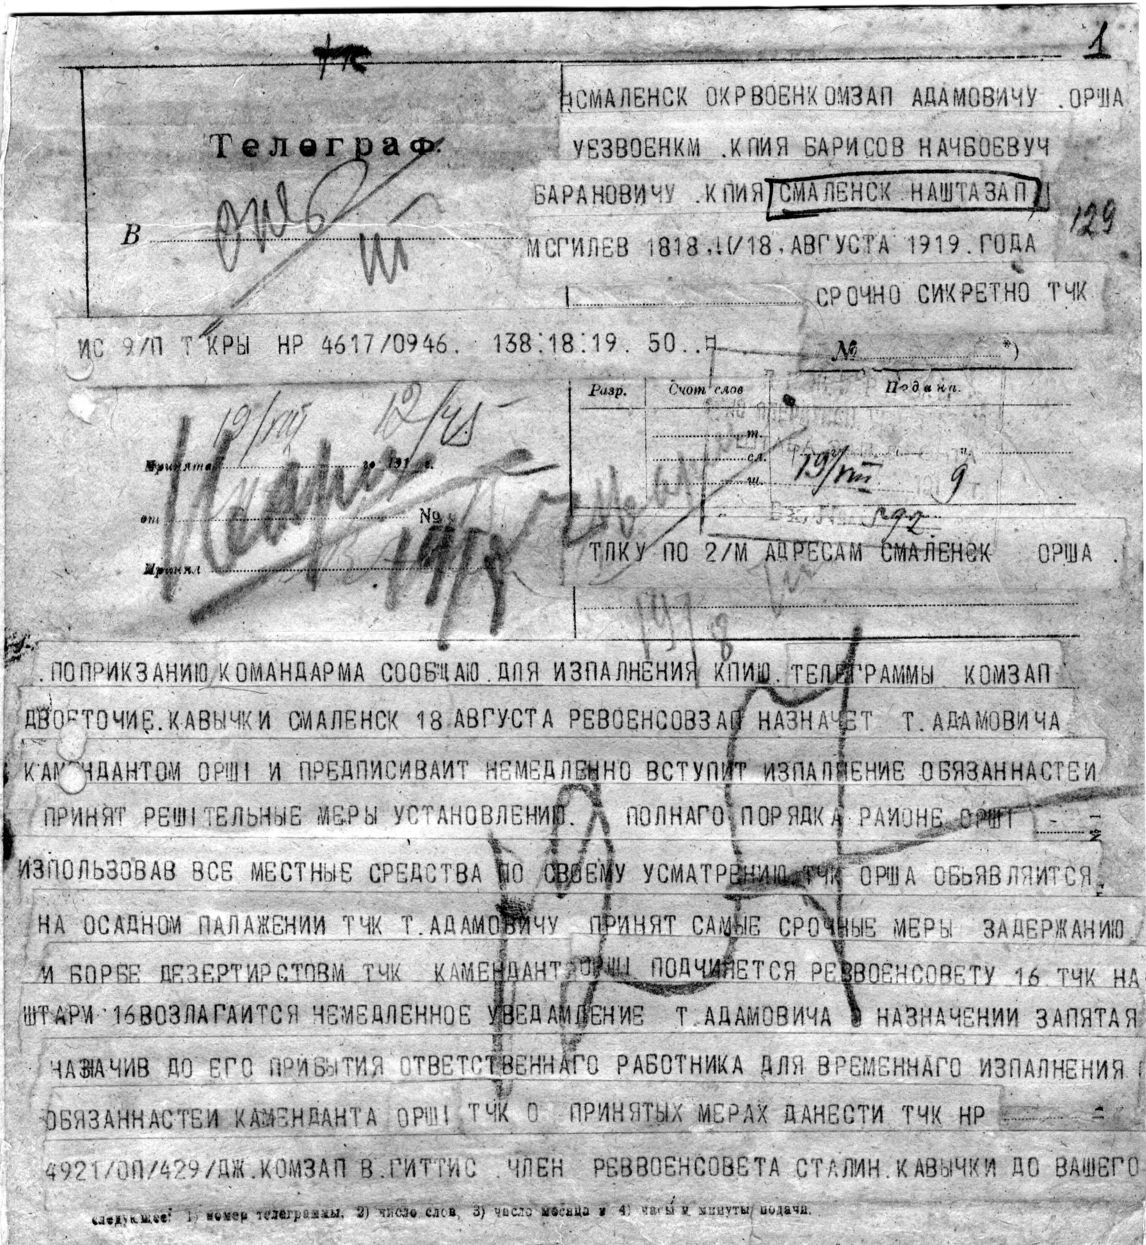 1
СМАЛЕНСК ОКРВОЕНКОМЗАП АДАМОВИЧУ .ОРША
Телеграф.
УЕЗВОЕНКМ .КПИЯ БАРИСОВ НАЧБОЕВУЧ
БАРАНОВИЧУ .КПИЯ СМАЛЕНСК НАШТАЗАП
129
В
МСГИЛЕВ 1818,II/18,АВГУСТА 1919.ГОДА
СРОЧНО СИКРЕТНО ТЧК
ИС 9/П Т КРЫ НР 4617/0946. 138:18:19. 50..
№ *)
Разр. Счет слов Подана.
19/VIII 12/45
Принята го 191 г.
т.
сл.
ш.
19/VIII 9
от №
892
Принял
19/8
ТЛКУ ПО 2/М АДРЕСАМ СМАЛЕНСК ОРША .
19/8
.ПОПРИКЗАНИЮ КОМАНДАРМА СООБЩАЮ.ДЛЯ ИЗПАЛНЕНИЯ КПИЮ.ТЕЛЕГРАММЫ КОМЗАП
ДВОЕТОЧИЕ.КАВЫЧКИ СМАЛЕНСК 18 АВГУСТА РЕВОЕНСОВЗАП НАЗНАЧЕТ Т.АДАМОВИЧА
КАМЕНДАНТОМ ОРШI И ПРЕДПИСИВАИТ НЕМЕДЛЕННО ВСТУПИТ ИЗПАЛНЕНИЕ ОБЯЗАННАСТЕИ
ПРИНЯТ РЕШIТЕЛЬНЫЕ МЕРЫ УСТАНОВЛЕНИЮ. ПОЛНАГО ПОРЯДКА РАИОНЕ ОРШI
ИЗПОЛЬЗОВАВ ВСЕ МЕСТНЫЕ СРЕДСТВА ПО СВОЕМУ УСМАТРЕНИЮ ТЧК ОРША ОБЬЯВЛЯИТСЯ
НА ОСАДНОМ ПАЛАЖЕНИИ ТЧК Т.АДАМОВИЧУ ПРИНЯТ САМЫЕ СРОЧНЫЕ МЕРЫ ЗАДЕРЖАНИЮ
И БОРБЕ ДЕЗЕРТИРСТОВМ ТЧК КАМЕНДАНТ ОРШI ПОДЧИНЯЕТСЯ РЕВВОЕНСОВЕТУ 16 ТЧК НА
ШТАРМ 16ВОЗЛАГАИТСЯ НЕМЕДЛЕННОЕ УВЕДАМЛЕНИЕ Т.АДАМОВИЧА О НАЗНАЧЕНИИ ЗАПЯТАЯ
НАЗНАЧИВ ДО ЕГО ПРИБЫТИЯ ОТВЕТСТВЕННАГО РАБОТНИКА ДЛЯ ВРЕМЕННАГО ИЗПАЛНЕНИЯ
ОБЯЗАННАСТЕИ КАМЕНДАНТА ОРШI ТЧК О ПРИНЯТЫХ МЕРАХ ДАНЕСТИ ТЧК НР
4921/ОП/429/ДЖ.КОМЗАП В.ГИТТИС ЧЛЕН РЕВВОЕНСОВЕТА СТАЛИН.КАВЫЧКИ ДО ВАШЕГО
следующее: 1) номер телеграммы, 2) число слов, 3) число месяца и 4) часы и минуты подачи.